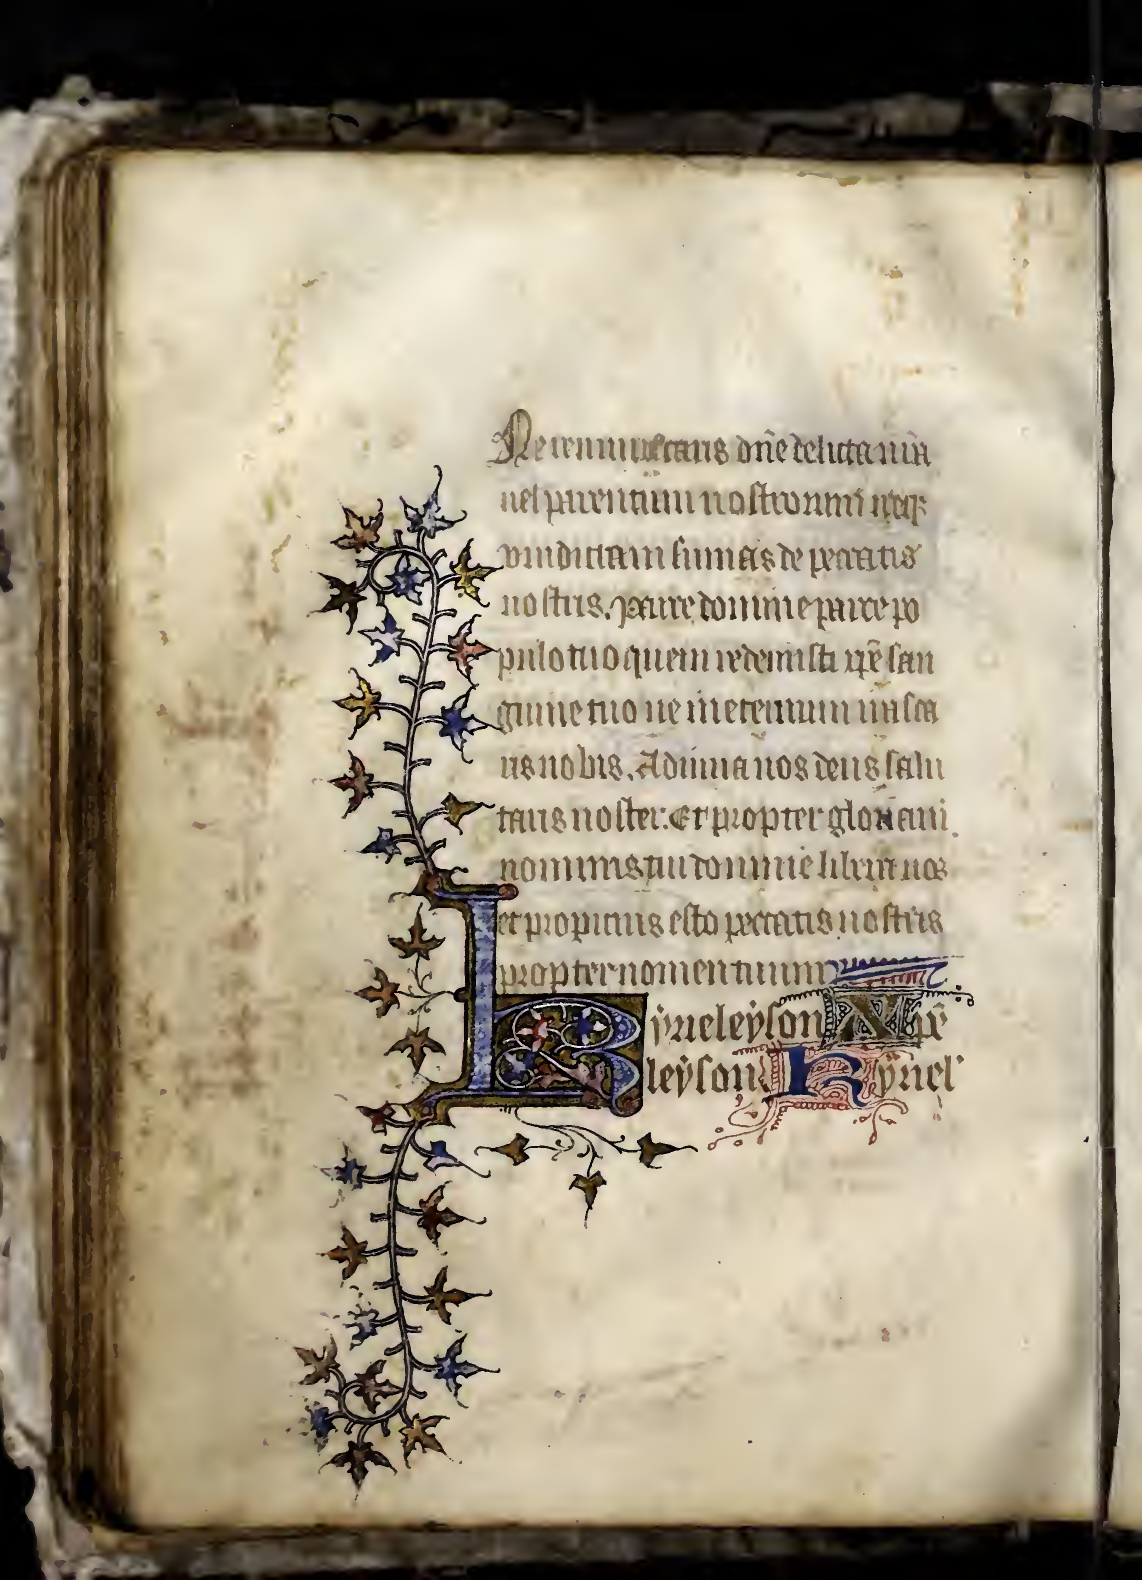 Ne reminiscaris dn̄e delicta n̄ra
uel parentum nostrorum neqꝫ
vindictam sumas de peccatis
nostris. Parce domine parce po
pulo tuo quem redemisti xp̄e san
guine tuo ne in eternum irasca
ris nobis. Adiuua nos deus salu
taris noster: Et propter gloriam
nominis tui domine libera nos
et propicius esto peccatis nostris
propter nomen tuum
Kyrieleyson Xpē
leyson Kyriel'